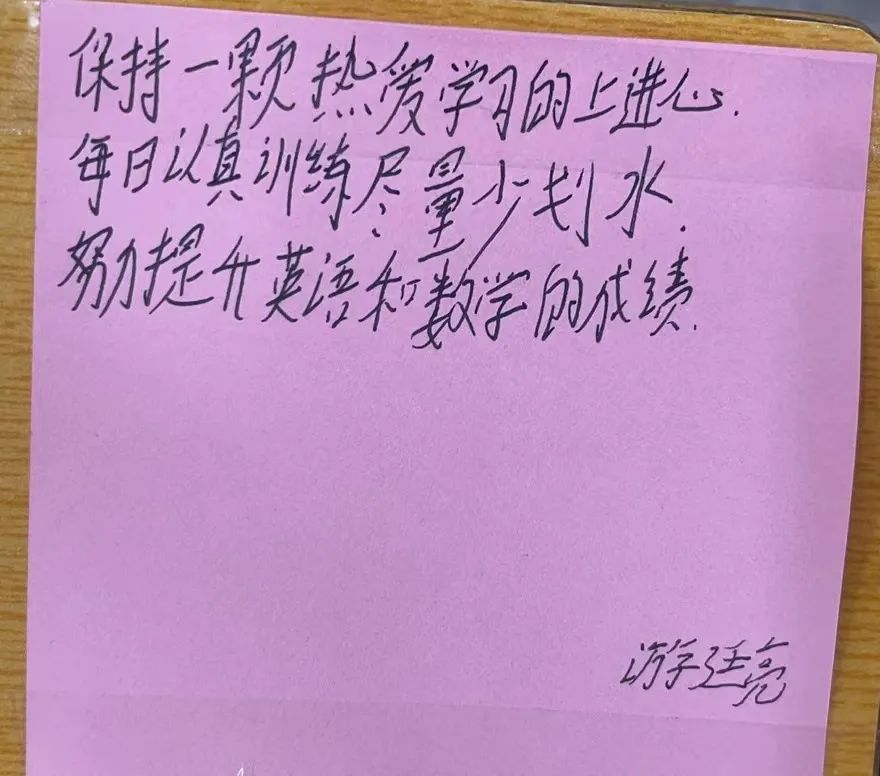 保持一颗热爱学习的上进心.
每日认真训练尽量少划水.
努力提升英语和数学的成绩.
游廷亮